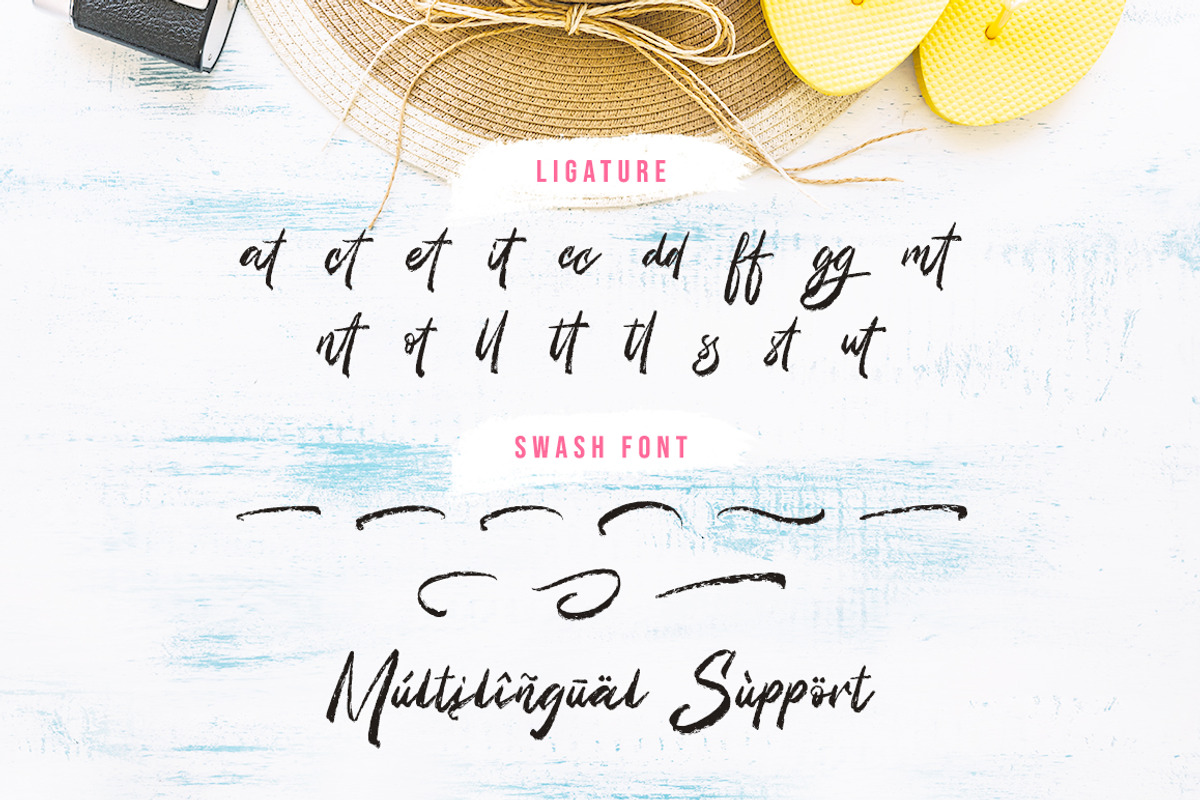 LIGATURE
at ct et it cc dd ff gg mt
nt ot ll tt tl ss st ut
SWASH FONT
Múltįlîñgūäl Sùppört